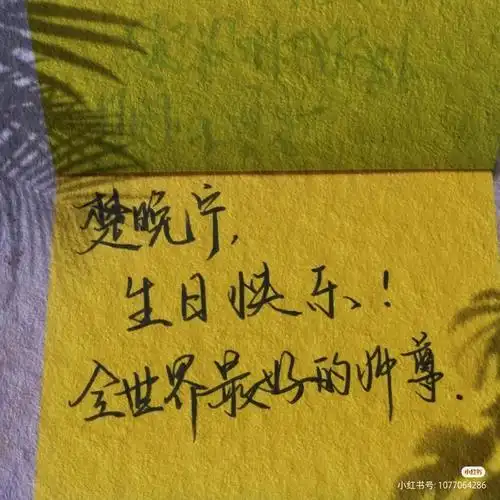 楚晚宁,
生日快乐!
全世界最好的师尊.
小红书
小红书号: 1077064286